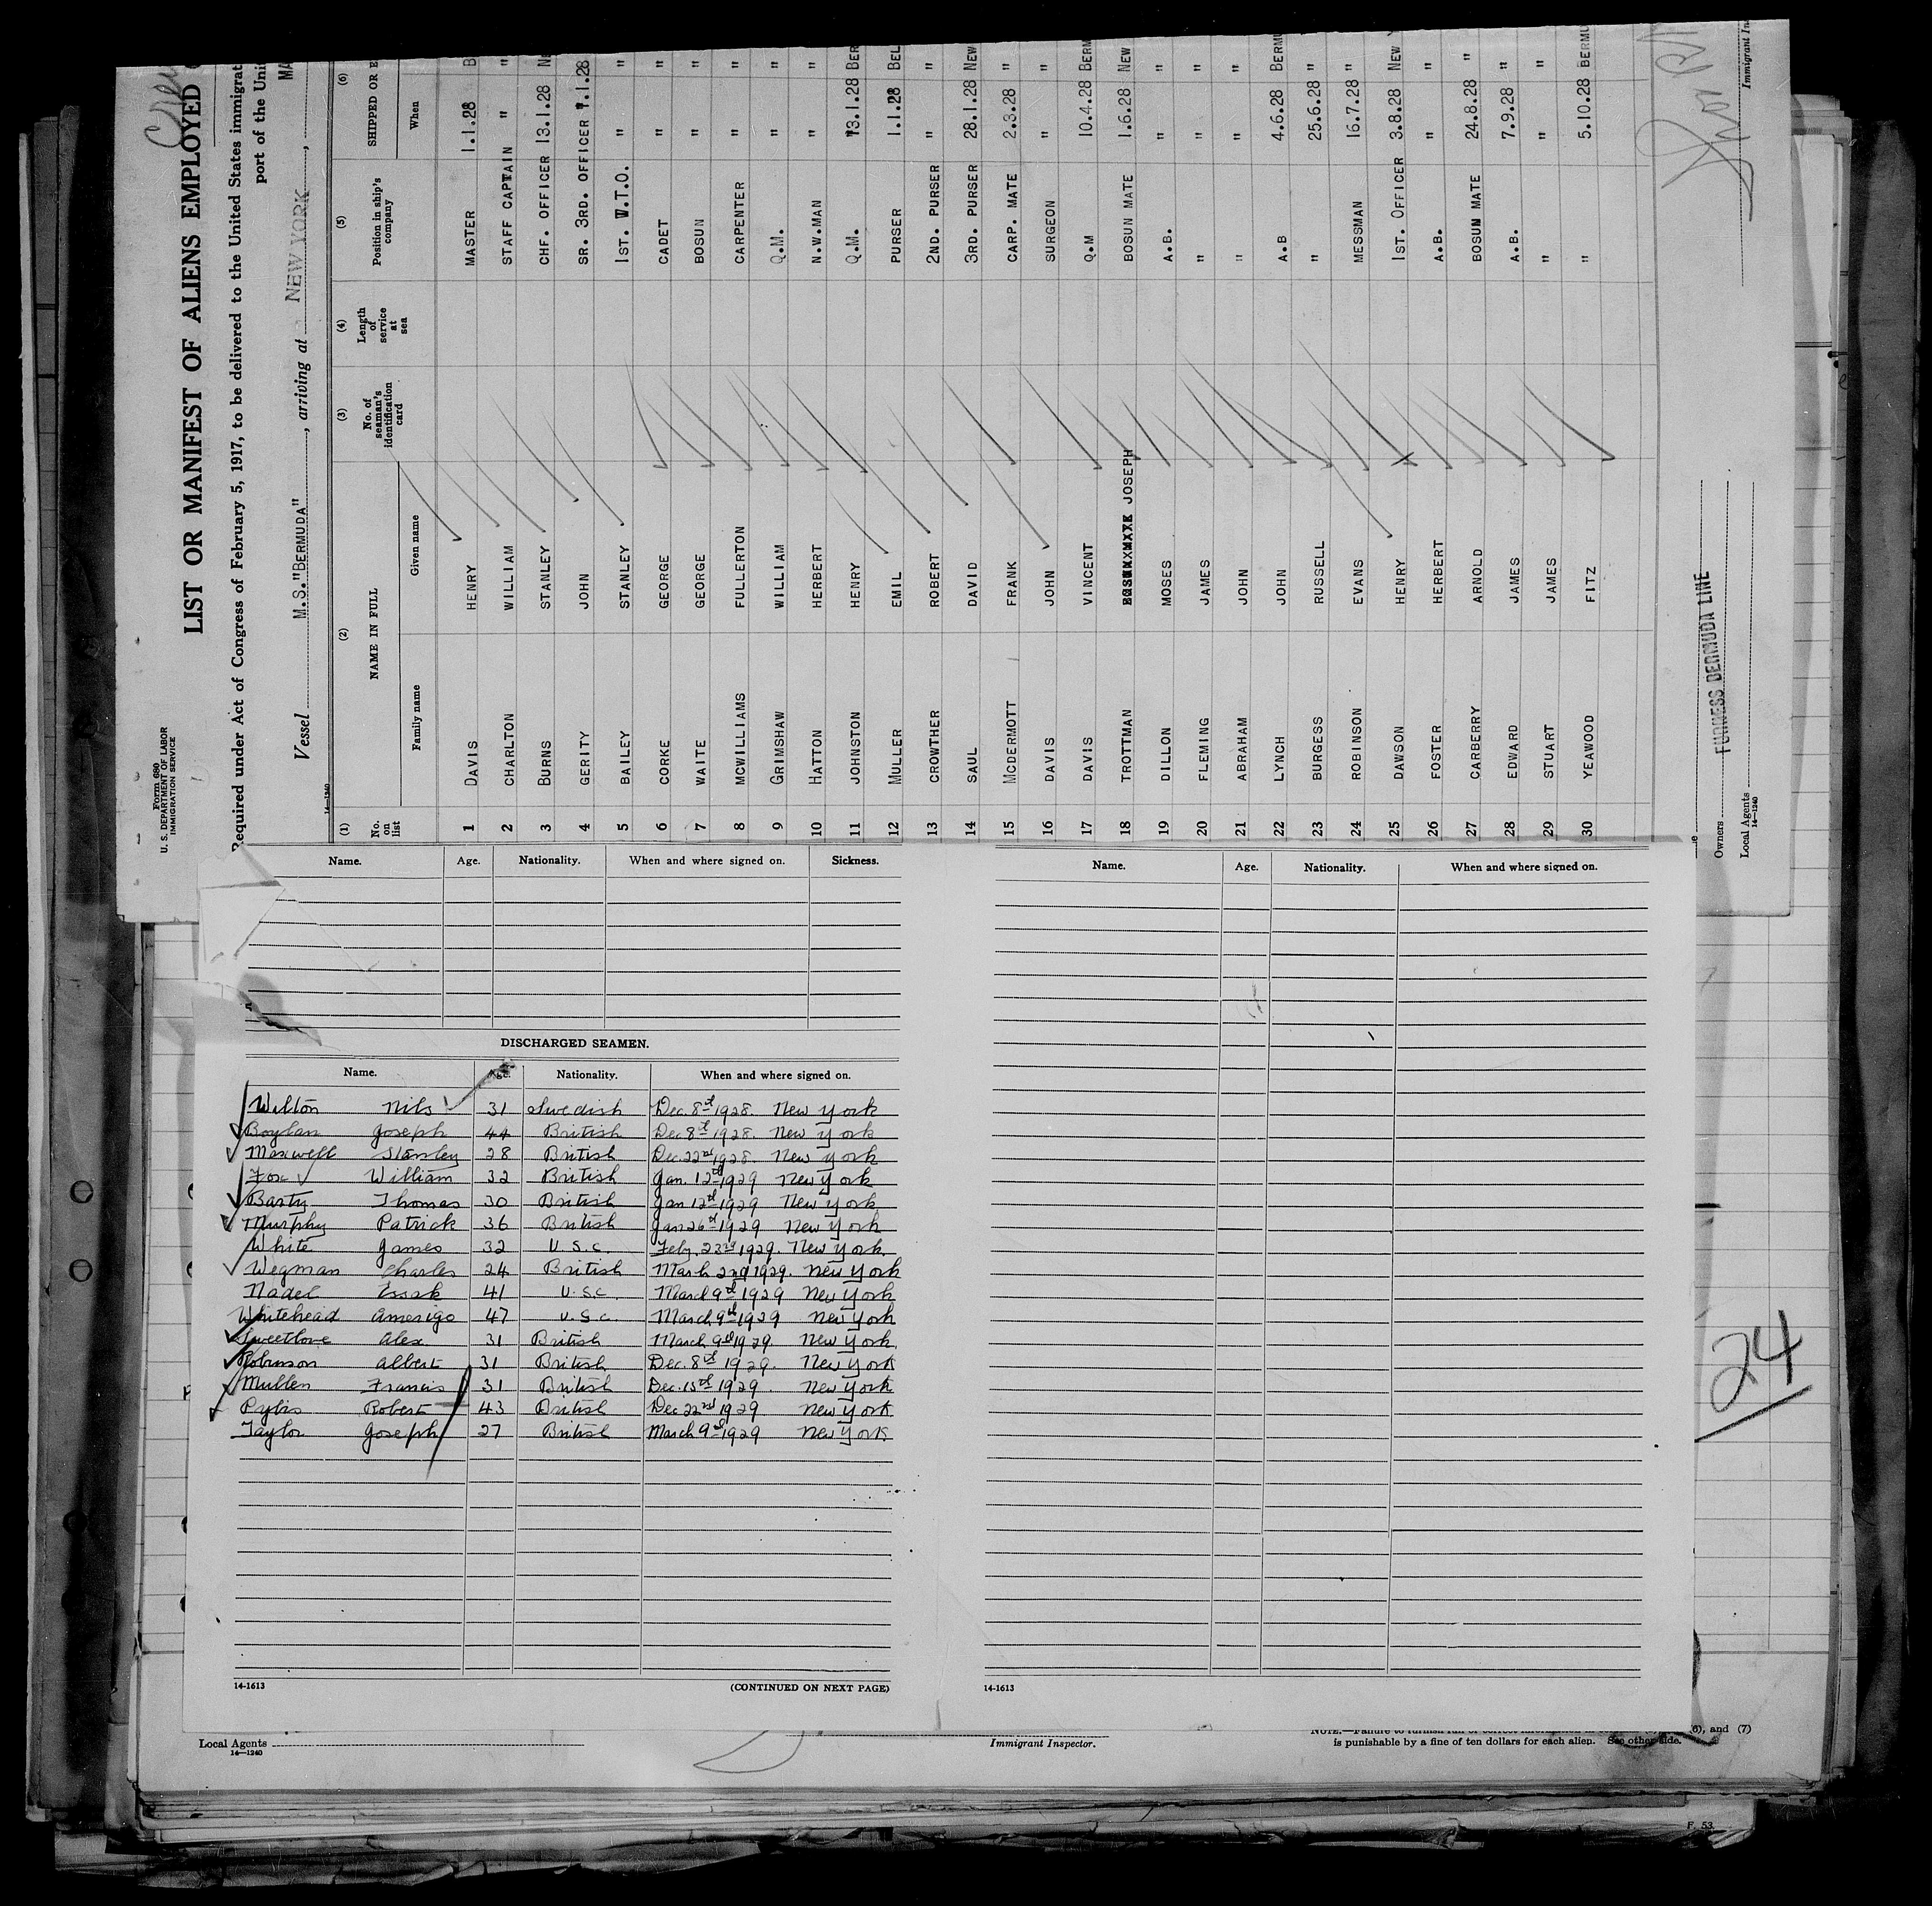 Form 680
U. S. DEPARTMENT OF LABOR
IMMIGRATION SERVICE
LIST OR MANIFEST OF ALIENS EMPLOYED
Required under Act of Congress of February 5, 1917, to be delivered to the United States immigrat
port of the Unit
Vessel M.S."BERMUDA", arriving at NEW YORK, MA
14—1240
(1) (2) (3) (4) (5) (6)
No. on list NAME IN FULL No. of seaman's identification card Length of service at sea Position in ship's company SHIPPED OR E
Family name Given name When
1 DAVIS HENRY MASTER 1.1.28 B
2 CHARLTON WILLIAM STAFF CAPTAIN " "
3 BURNS STANLEY CHF. OFFICER 13.1.28 NE
4 GERITY JOHN SR. 3RD. OFFICER 7.1.28 "
5 BAILEY STANLEY 1ST. W.T.O. " "
6 CORKE GEORGE CADET " "
7 WAITE GEORGE BOSUN " "
8 MCWILLIAMS FULLERTON CARPENTER " "
9 GRIMSHAW WILLIAM Q.M. " "
10 HATTON HERBERT N.W.MAN " "
11 JOHNSTON HENRY Q.M. 13.1.28 BER
12 MULLER EMIL PURSER 1.1.28 BEL
13 CROWTHER ROBERT 2ND. PURSER " "
14 SAUL DAVID 3RD. PURSER 28.1.28 NEW
15 MCDERMOTT FRANK CARP. MATE 2.3.28 "
16 DAVIS JOHN SURGEON " "
17 DAVIS VINCENT Q.M 10.4.28 BERM
18 TROTTMAN JOSEPH BOSUN MATE 1.6.28 NEW
19 DILLON MOSES A.B. " "
20 FLEMING JAMES " " "
21 ABRAHAM JOHN " " "
22 LYNCH JOHN A.B 4.6.28 BERMU
23 BURGESS RUSSELL " 25.6.28 "
24 ROBINSON EVANS MESSMAN 16.7.28 "
25 DAWSON HENRY 1ST. OFFICER 3.8.28 NEW
26 FOSTER HERBERT A.B. " "
27 CARBERRY ARNOLD BOSUN MATE 24.8.28 "
28 EDWARD JAMES A.B. 7.9.28 "
29 STUART JAMES " " "
30 YEAWOOD FITZ " 5.10.28 BERMU
Owners FURNESS BERMUDA LINE
Local Agents
14—1240
Immigrant In
Name. Age. Nationality. When and where signed on. Sickness.
DISCHARGED SEAMEN.
Name. Age. Nationality. When and where signed on.
Wilton Nils 31 Swedish Dec. 8th 1928. New York
Boylan Joseph 44 British Dec 8th 1928. New York
Maxwell Stanley 28 British Dec. 22nd 1928. New York
Fox William 32 British Jan. 12th 1929 New York
Barty Thomas 30 British Jan 12th 1929 New York
Murphy Patrick 36 British Jan 26th 1929 New York
White James 32 U.S.C. Feby. 23rd 1929. New York
Wegman Charles 24 British March 2nd 1929. New York
Nadel Essak 41 U.S.C. March 9th 1929 New York
Whitehead Amerigo 47 U.S.C. March 9th 1929 New York
Sweetlove Alex 31 British March 9th 1929. New York.
Robinson Albert 31 British Dec. 8th 1929. New York
Mullen Francis 31 British Dec. 15th 1929. New York
Pybis Robert 43 British Dec 22nd 1929 New York
Taylor Joseph 27 British March 9th 1929 New York
14-1613 (CONTINUED ON NEXT PAGE)
Name. Age. Nationality. When and where signed on.
14-1613
24
Local Agents
14—1240
Immigrant Inspector.
(6), and (7)
is punishable by a fine of ten dollars for each alien. See other side.
F. 53